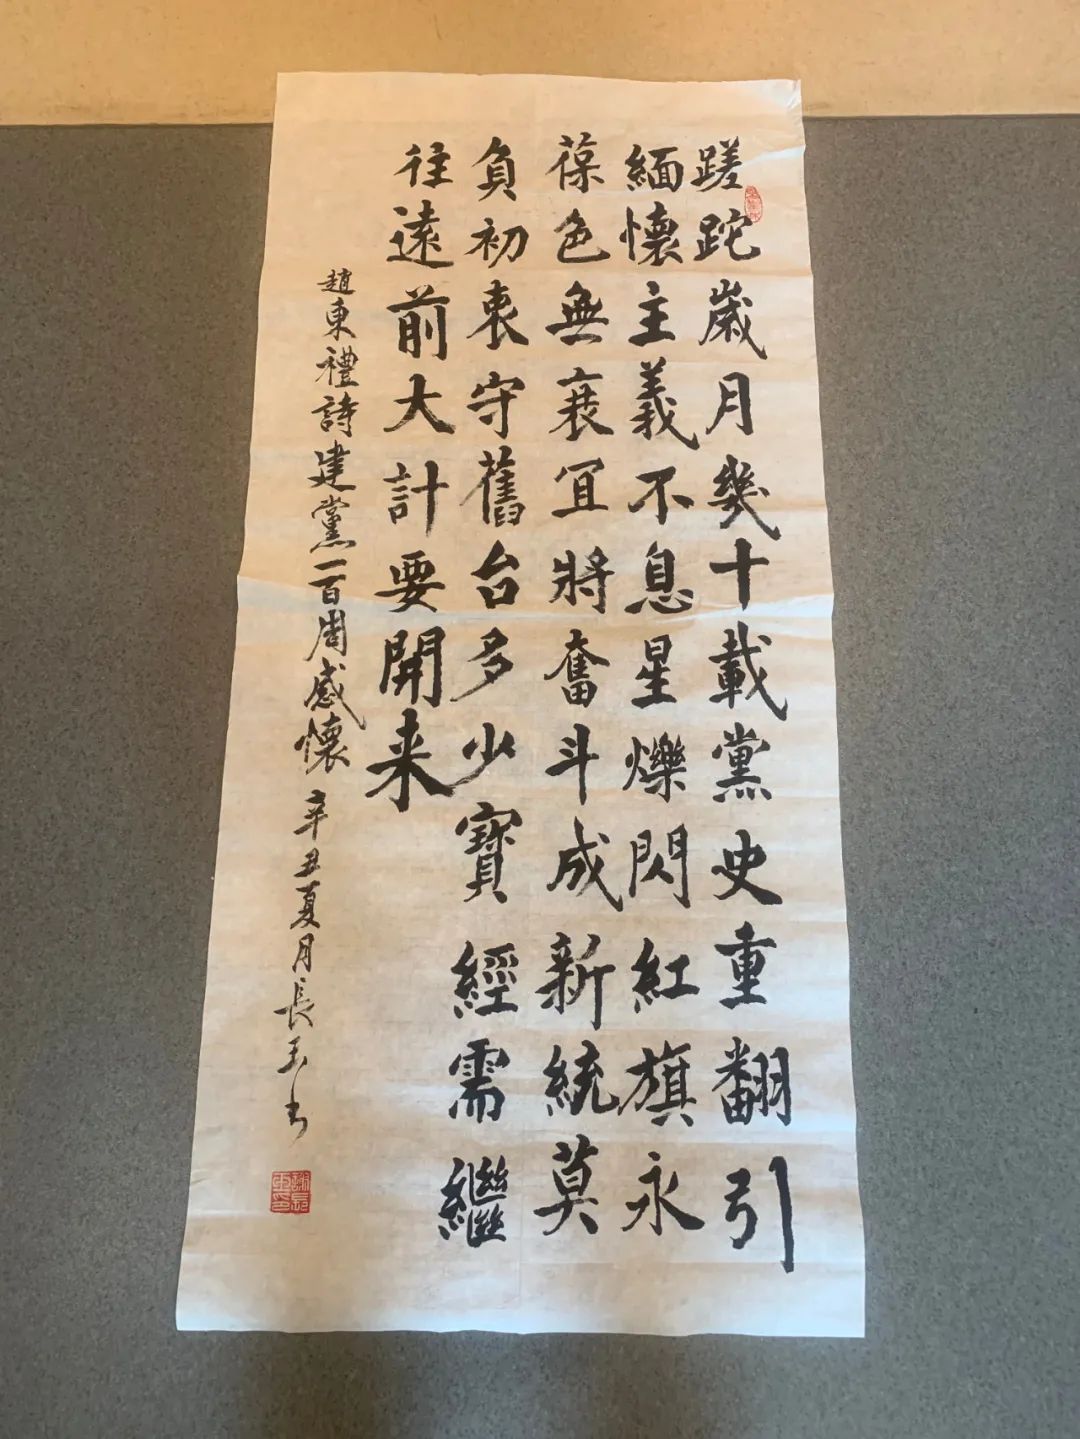 蹉跎歲月幾十載黨史重翻引
緬懷主義不息星爍閃紅旗永
葆色無衰宜將奮斗成新統莫
負初衷守舊台多少寶經需繼
往遠前大計要開来
趙東禮詩建黨一百周感懷 辛丑夏月長玉书